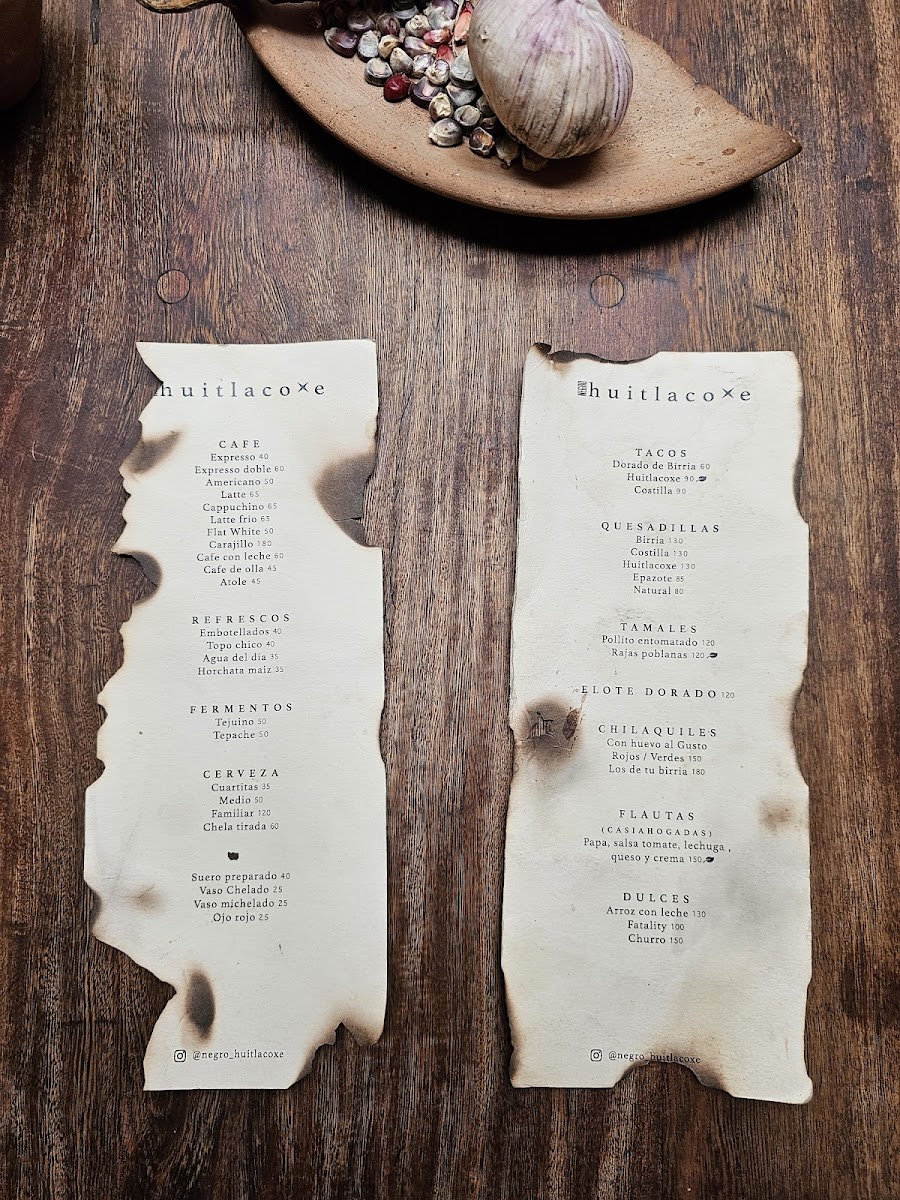 huitlacoxe
CAFE
Expresso 40
Expresso doble 60
Americano 50
Latte 65
Cappuchino 65
Latte frio 65
Flat White 50
Carajillo 180
Cafe con leche 60
Cafe de olla 45
Atole 45
REFRESCOS
Embotellados 40
Topo chico 40
Agua del día 35
Horchata maiz 35
FERMENTOS
Tejuino 50
Tepache 50
CERVEZA
Cuartitas 35
Medio 50
Familiar 120
Chela tirada 60
Suero preparado 40
Vaso Chelado 25
Vaso michelado 25
Ojo rojo 25
@negro_huitlacoxe
NEGRO huitlacoxe
TACOS
Dorado de Birria 60
Huitlacoxe 90
Costilla 90
QUESADILLAS
Birria 130
Costilla 130
Huitlacoxe 130
Epazote 85
Natural 80
TAMALES
Pollito entomatado 120
Rajas poblanas 120
ELOTE DORADO 120
CHILAQUILES
Con huevo al Gusto
Rojos / Verdes 150
Los de tu birria 180
FLAUTAS
(CASIAHOGADAS)
Papa, salsa tomate, lechuga ,
queso y crema 150
DULCES
Arroz con leche 130
Fatality 100
Churro 150
@negro_huitlacoxe